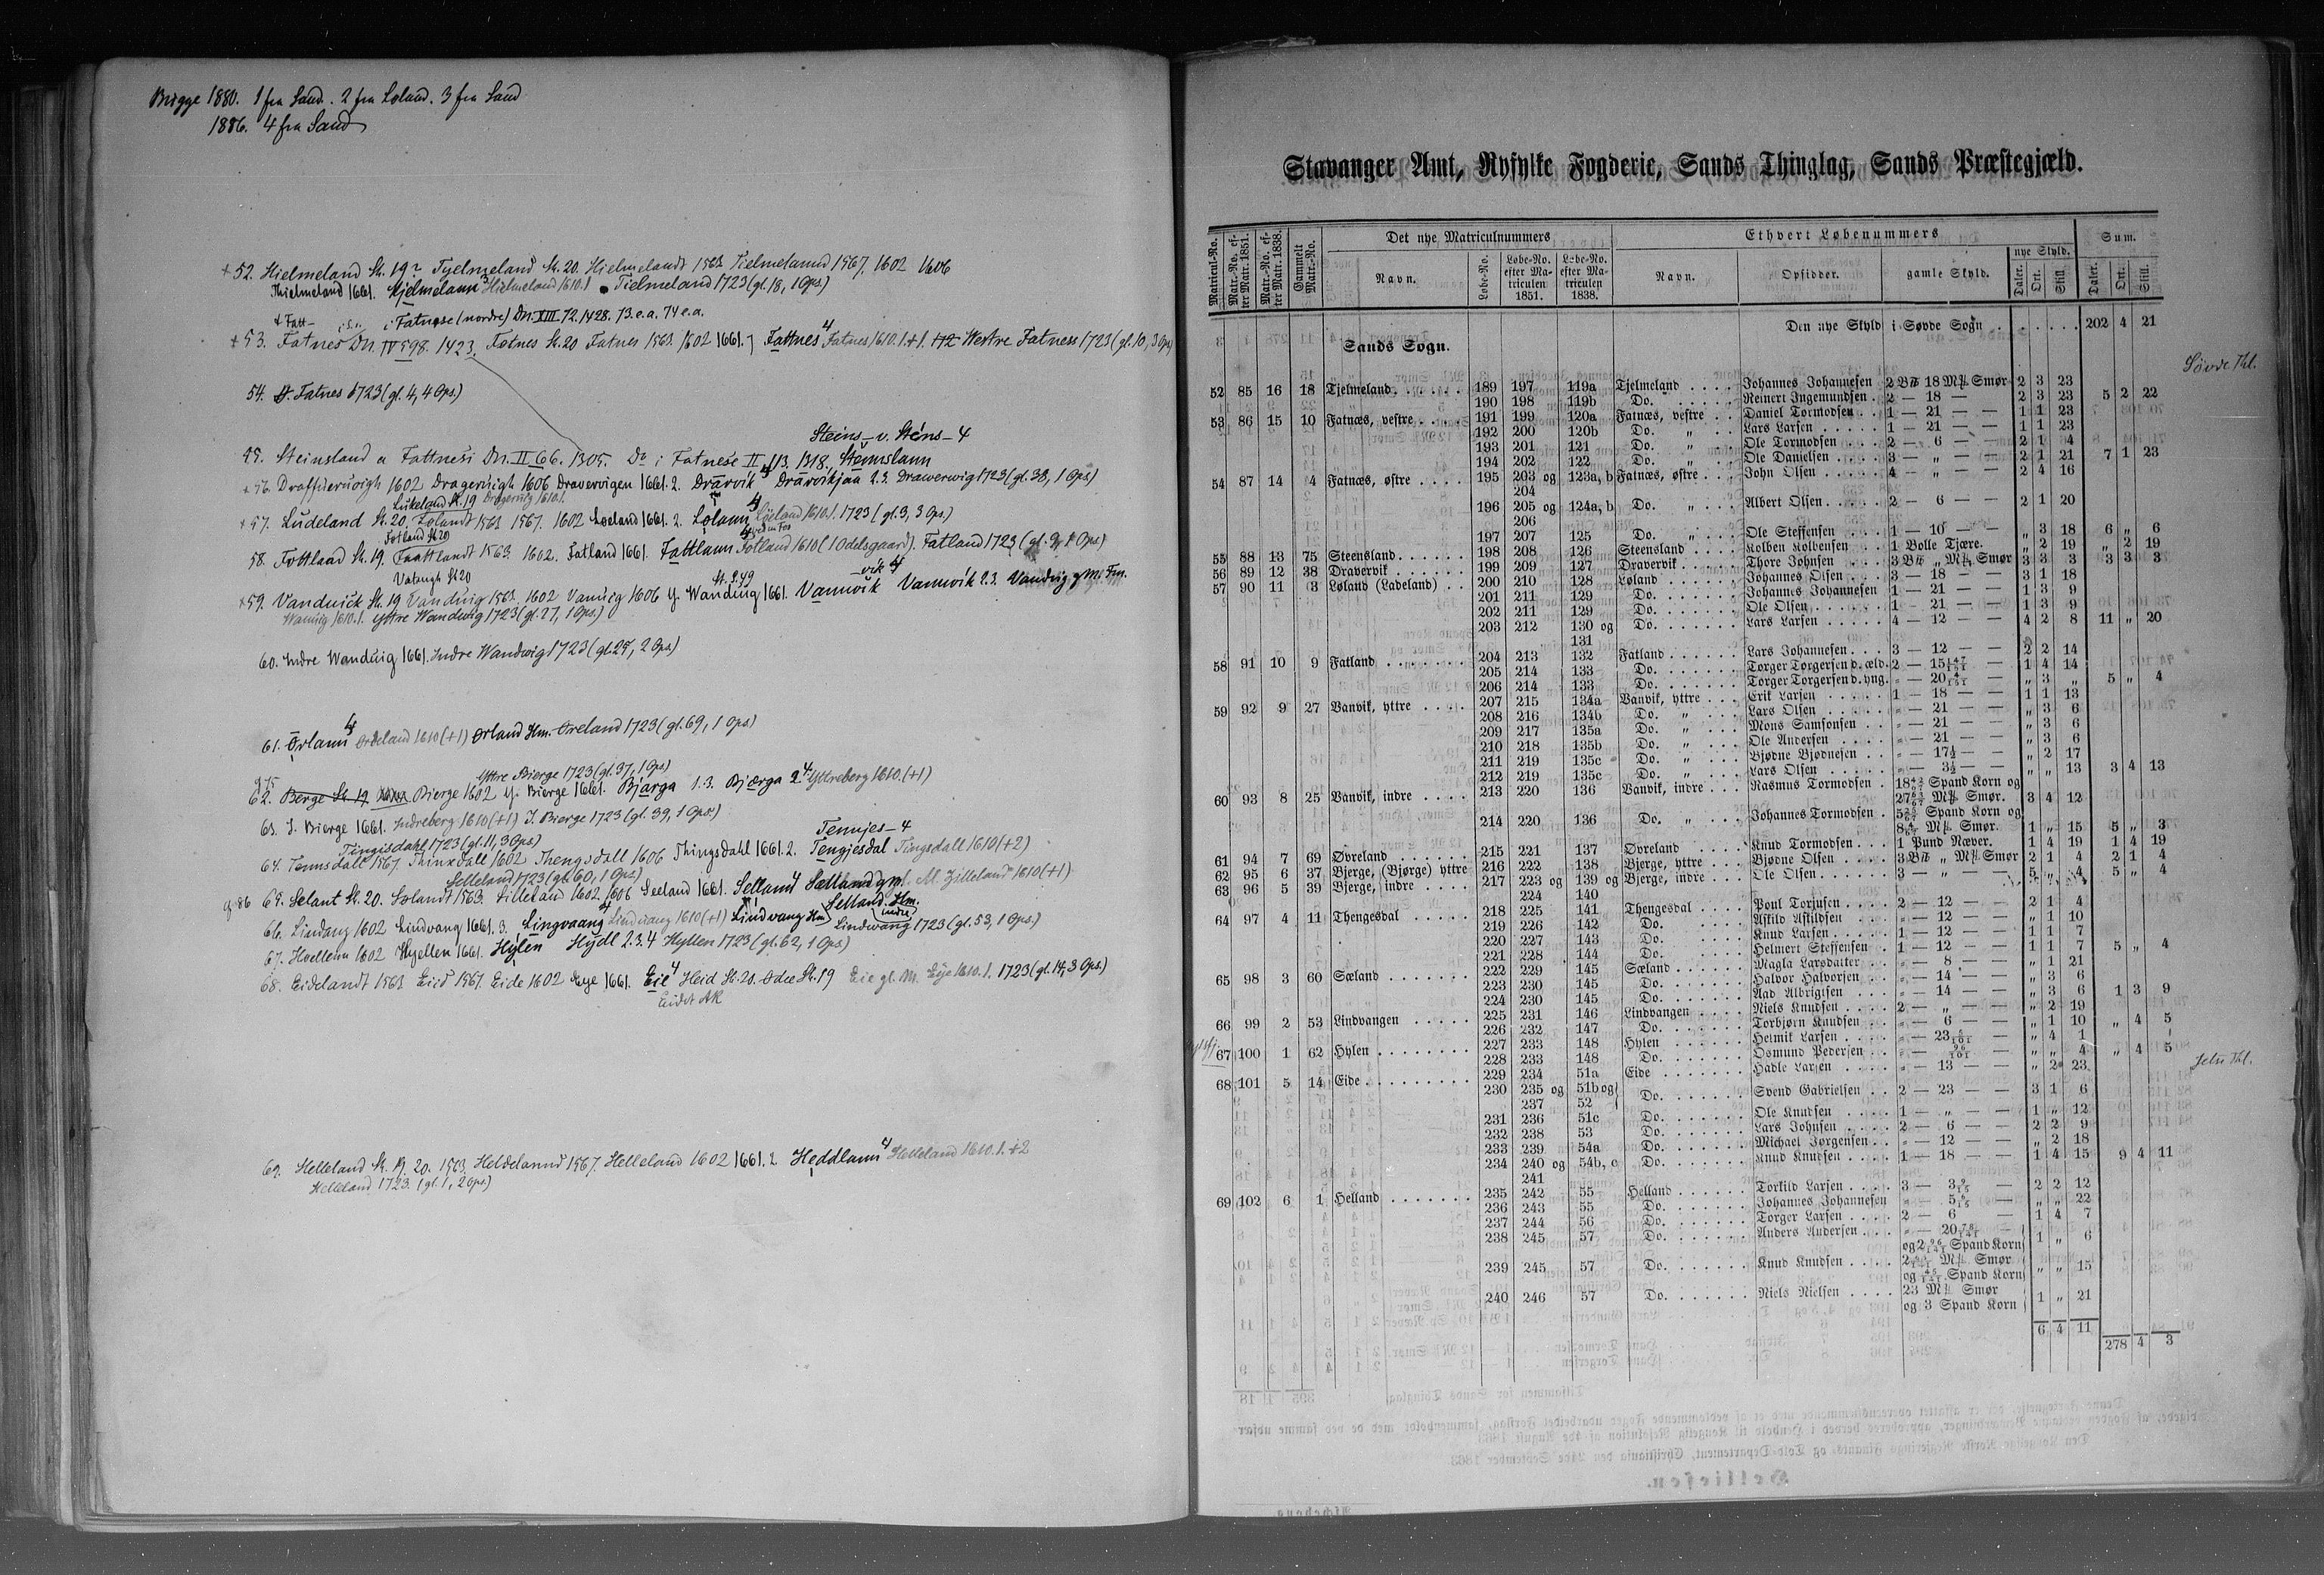 Brigge 1880. 1 fra Sand. 2 fra Loland. 3 fra Sand
1886. 4 fra Sand
+52. Hielmeland St. 19? Tyelmeland St. 20. Hielmelandt 1563 Tielmelannd 1567, 1602 1606
Thielmeland 1661. Kjelmelann 3 Hielmeland 1610.1 Tielmeland 1723 (gl. 18, 1 Ops.)
i Fatnese (nordre) Dn. XIII 72. 1428. 73. e.a. 74 e.a.
+53. Fatnes Dn. IV 598. 1423. Fatnes St. 20 Fatnes 1563 1602 1661. Fattnes 4 Fatnes 1610.1+1. +12 Westre Fatness 1723 (gl. 10, 3 Ops)
54. Ø. Fatnes 1723 (gl. 4, 4 Ops.)
Steins- v. Sténs- 4
55. Steinsland a Fattnesi Dn. II 66. 1305. Do i Fatnese II 113. 1318. Stennslann
+56. 1602 Dragervigh 1606 Dravervigen 1661. 2. Drarvik Drarvikjaa 2.3. Drawerwig 1723 (gl. 38, 1 Ops.)
Lukeland St. 19 Dragervig 1610.1.
+57. Ludeland St. 20. Lolandt 1563 1567. 1602 Loeland 1661. 2. Lolann 4 Loeland 1610.1. 1723 (gl. 3, 3 Ops.)
Fotland St. 20
58. Fottland St. 19. Faattlandt 1563. 1602. Fatland 1661. Fattlann Fotland 1610 (1 Odelsgaard). Fatland 1723 (gl. 9, 1 Ops.)
+59. Vandwick St. 19 Vandvig 1563. 1602 Vanvig 1606 Y. Wandvig 1661. Vannvik Vannvik 2.3. Vandvig gM. Fm.
Wanvig 1610.1. Yttre Wandwig 1723 (gl. 27, 1 Ops.)
60. Indre Wandvig 1661. Indre Wandwig 1723 (gl. 25, 2 Ops.)
61. Ørlann 4 Ordeland 1610 (+1) Ørland Hm. Øreland 1723 (gl. 69, 1 Ops.)
Yttre Bierge 1723 (gl. 37, 1 Ops.)
62. Berge St. 19 Bierge 1602 Y. Bierge 1661. Bjarga 1.3. Bjærga 2 4. Yttreberg 1610. (+1)
63. I. Bierge 1661. Indreberg 1610 (+1) I. Bierge 1723 (gl. 39, 1 Ops.)
Tingisdahl 1723 (gl. 11, 3 Ops) Tennjes- 4
64. Tennsdall 1567. Thinxdall 1602 Thengsdall 1606 Thingsdahl 1661. 2. Tengjesdal Tingsdall 1610 (+2)
Selleland 1723 (gl. 60, 1 Ops.)
65. Selant St. 20. Solandt 1563. Silleland 1602. 1606 Seeland 1661. Sellann 4 Sætland gM. Zilleland 1610 (+1)
Selland. Hm.
66. Lindang 1602 Lindvang 1661. 3. Lingvaang Lindvang 1610 (+1) Lindvang Hm Lindwang 1723 (gl. 53, 1 Ops.)
67. Hoellenn 1602 Hyellen 1661. Hylen Hydl 2.3.4 Hyllen 1723 (gl. 62, 1 Ops.)
68. Eidelandt 1563 Eid 1567. Eide 1602 Eye 1661. Eie 4 Heid St. 20. Odee St. 19 Eie gl. M. Eye 1610.1. 1723 (gl. 14, 3 Ops.)
Eidet AR
69. Helleland St. 19. 20. 1563. Heldelannd 1567. Helleland 1602 1661. 2 Heddlann 4 Helleland 1610.1.+2
Helleland 1723. (gl. 1, 2 Ops.)
Stavanger Amt, Ryfylke Fogderie, Sands Thinglag, Sands Præstegjæld.
Matricul-No. Matr.-No. efter Matr. 1851. Matr.-No. efter Matr. 1838. Gammelt Matr.-No. Det nye Matriculnummers Ethvert Løbenummers Sum.
Navn. Løbe-No. Løbe-No. efter Matriculen 1851. Løbe-No. efter Matriculen 1838. Navn. Opsidder. gamle Skyld. nye Skyld. Daler. Ort. Skill. Daler. Ort. Skill.
Den nye Skyld i Søvde Sogn . . . . . . 202 4 21
Sands Sogn.
Søvde Thl.
52 85 16 18 Tjelmeland . . . . . . 189 197 119a Tjelmeland . . . . Johannes Johannesen 2 B℔ 18 M℔ Smør 2 3 23
190 198 119b Do. . . . . . Reinert Ingemundsen . 2 — 18 — 2 3 23 5 2 22
53 86 15 10 Fatnæs, vestre . . . . 191 199 120a Fatnæs, vestre . . Daniel Tormodsen . . 1 — 21 — — 1 1 23
192 200 120b Do. „ . . Lars Larsen . . . . . 1 — 21 — — 1 1 23
193 201 121 Do. „ . . Ole Tormodsen . . . 2 — 6 — — 2 1 4
194 202 122 Do. „ . . Ole Danielsen . . . . 3 — „ — — 2 1 21 7 1 23
54 87 14 4 Fatnæs, østre . . . . 195 203 og 123a, b Fatnæs, østre . . . John Olsen . . . . . . 4 — „ — — 2 4 16
204
196 205 og 124a, b Do. „ . . . Albert Olsen . . . . . 2 — 6 — — 2 1 20
206
197 207 125 Do. „ . . . Ole Steffensen . . . . 1 — 10 — — „ 3 18 6 „ 6
55 88 13 75 Steensland . . . . . . 198 208 126 Steensland . . . . Kolben Kolbensen . . 1 Bolle Tjære. „ 2 19 „ 2 19
56 89 12 38 Dravervik . . . . . . 199 209 127 Dravervik . . . . . Thore Johnsen . . . . 3 B℔ „ M℔ Smør 3 3 3 3 3 3
57 90 11 3 Løland (Ladeland) . . 200 210 128 Løland . . . . . . Johannes Olsen . . . 3 — 18 — — 3 1 18
201 211 129 Do. . . . . . . Johannes Johannesen 1 — 21 — — 1 3 9
202 211 129 Do. . . . . . . Ole Olsen . . . . . . 1 — 21 — — 1 3 9
203 212 130 og Do. . . . . . . Lars Larsen . . . . . 4 — 12 — — 4 2 8 11 „ 20
131
58 91 10 9 Fatland . . . . . . . 204 213 132 Fatland . . . . . . Lars Johannesen . . . 3 — 12 — — 2 2 14
205 214 133 Do. . . . . . . Torger Torgersen d. æld. 2 — 15 147/151 — 1 4 14
206 214 133 Do. . . . . . . Torger Torgersen d. yng. „ — 20 4/151 — „ 3 „ 5 „ 4
59 92 9 27 Vanvik, yttre . . . . 207 215 134a Vanvik, yttre . . . Erik Larsen . . . . . 1 — 18 — — 1 1 13
208 216 134b Do. „ . . . Lars Olsen . . . . . „ — 21 — — „ 3 6
209 217 135a Do. „ . . . Mons Samsonsen . . „ — 21 — — „ 3 6
210 218 135b Do. „ . . . Ole Andersen . . . . „ — 21 — — „ 3 6
211 219 135c Do. „ . . . Bjødne Bjødnesen . . „ — 17½ — — „ 2 17
212 219 135c Do. „ . . . Lars Olsen . . . . . „ — 3½ — — „ „ 13 3 4 13
60 93 8 25 Vanvik, indre . . . . 213 220 136 Vanvik, indre . . . Rasmus Tormodsen . 18 42/67 Spand Korn og
27 63/67 M℔ Smør. 3 4 12
214 220 136 Do. „ . . . Johannes Tormodsen . 5 25/67 Spand Korn og
8 4/67 M℔ Smør. 1 „ 15 5 „ 3
61 94 7 69 Øvreland . . . . . . 215 221 137 Øvreland . . . . Knud Tormodsen . . . 1 Pund Næver. 1 4 19 1 4 19
62 95 6 37 Bjerge, (Bjørge) yttre 216 222 138 Bjerge, yttre . . . Bjødne Olsen . . . . 3 B℔ „ M℔ Smør 2 1 4 2 1 4
63 96 5 39 Bjerge, indre . . . . 217 223 og 139 og Bjerge, indre . . . Ole Olsen . . . . . . 3 — „ — — 5 „ 4 5 „ 4
224 140
64 97 4 11 Thengesdal . . . . . 218 225 141 Thengesdal . . . . Poul Torjusen . . . . 2 — 12 — — 2 1 4
219 226 142 Do. Askild Askildsen . . . „ — 12 — — „ 1 10
220 227 143 Do. Knud Larsen . . . . . 1 — 12 — — 1 1 7
221 228 144 Do. Helmert Steffensen . 1 — 12 — — 1 1 7 5 „ 4
65 98 3 60 Sæland . . . . . . . 222 229 145 Sæland . . . . . . Magla Larsdatter . . „ — 8 — — „ 1 21
223 230 145 Do. . . . . . . Halvor Halvorsen . . „ — 14 — — „ 3 6
224 230 145 Do. . . . . . . Aad Albrigtsen . . . „ — 14 — — „ 3 6 1 3 9
66 99 2 53 Lindvangen . . . . . 225 231 146 Lindvangen . . . . Niels Knudsen . . . . 2 — „ — — „ 2 19
226 232 147 Do. . . . . . . Torbjørn Knudsen . . „ — 6 — — „ 1 10 „ 4 5
67 100 1 62 Hylen . . . . . . . . 227 233 148 Hylen . . . . . . Helmik Larsen . . . . „ — 23 5/101 — „ 4 1
228 233 148 Do. . . . . . . Osmund Pedersen . . „ — 96/101 — „ „ 4 „ 4 5
Jelse Thl.
68 101 5 14 Eide . . . . . . . . . 229 234 51a Eide . . . . . . . Hadle Larsen . . . . „ — 13 — — „ 2 23
230 235 og 51b og Do. . . . . . . Svend Gabrielsen . . 2 — 23 — — 3 1 6
237 52
231 236 51c Do. . . . . . . Ole Knudsen . . . . 1 — „ — — 1 „ 12
232 238 53 Do. . . . . . . Lars Johnsen . . . . 2 — 6 — — 2 2 9
233 239 54a Do. . . . . . . Michael Jørgensen . . „ — 12 — — „ 2 18
234 240 og 54b, c Do. . . . . . . Knud Knudsen . . . . 1 — 18 — — 1 4 15 9 4 11
241
69 102 6 1 Helland . . . . . . . 235 242 55 Helland . . . . . . Torkild Larsen . . . . 3 — 3 9/15 — 2 2 12
236 243 55 Do. . . . . . . Johannes Johannesen „ — 5 6/15 — „ „ 22
237 244 56 Do. . . . . . . Torger Larsen . . . . 2 — 6 — 1 4 7
238 245 57 Do. . . . . . . Anders Andersen . . . „ — 20 78/141 —
og 2 96/141 Spand Korn 1 „ 6
239 245 57 Do. . . . . . . Knud Knudsen . . . . 2 M℔ Smør
og 45/141 Spand Korn „ „ 15
240 246 57 Do. . . . . . . Niels Nielsen . . . . . 23 M℔ Smør
og 3 Spand Korn 1 „ 21
6 4 11
278 4 3